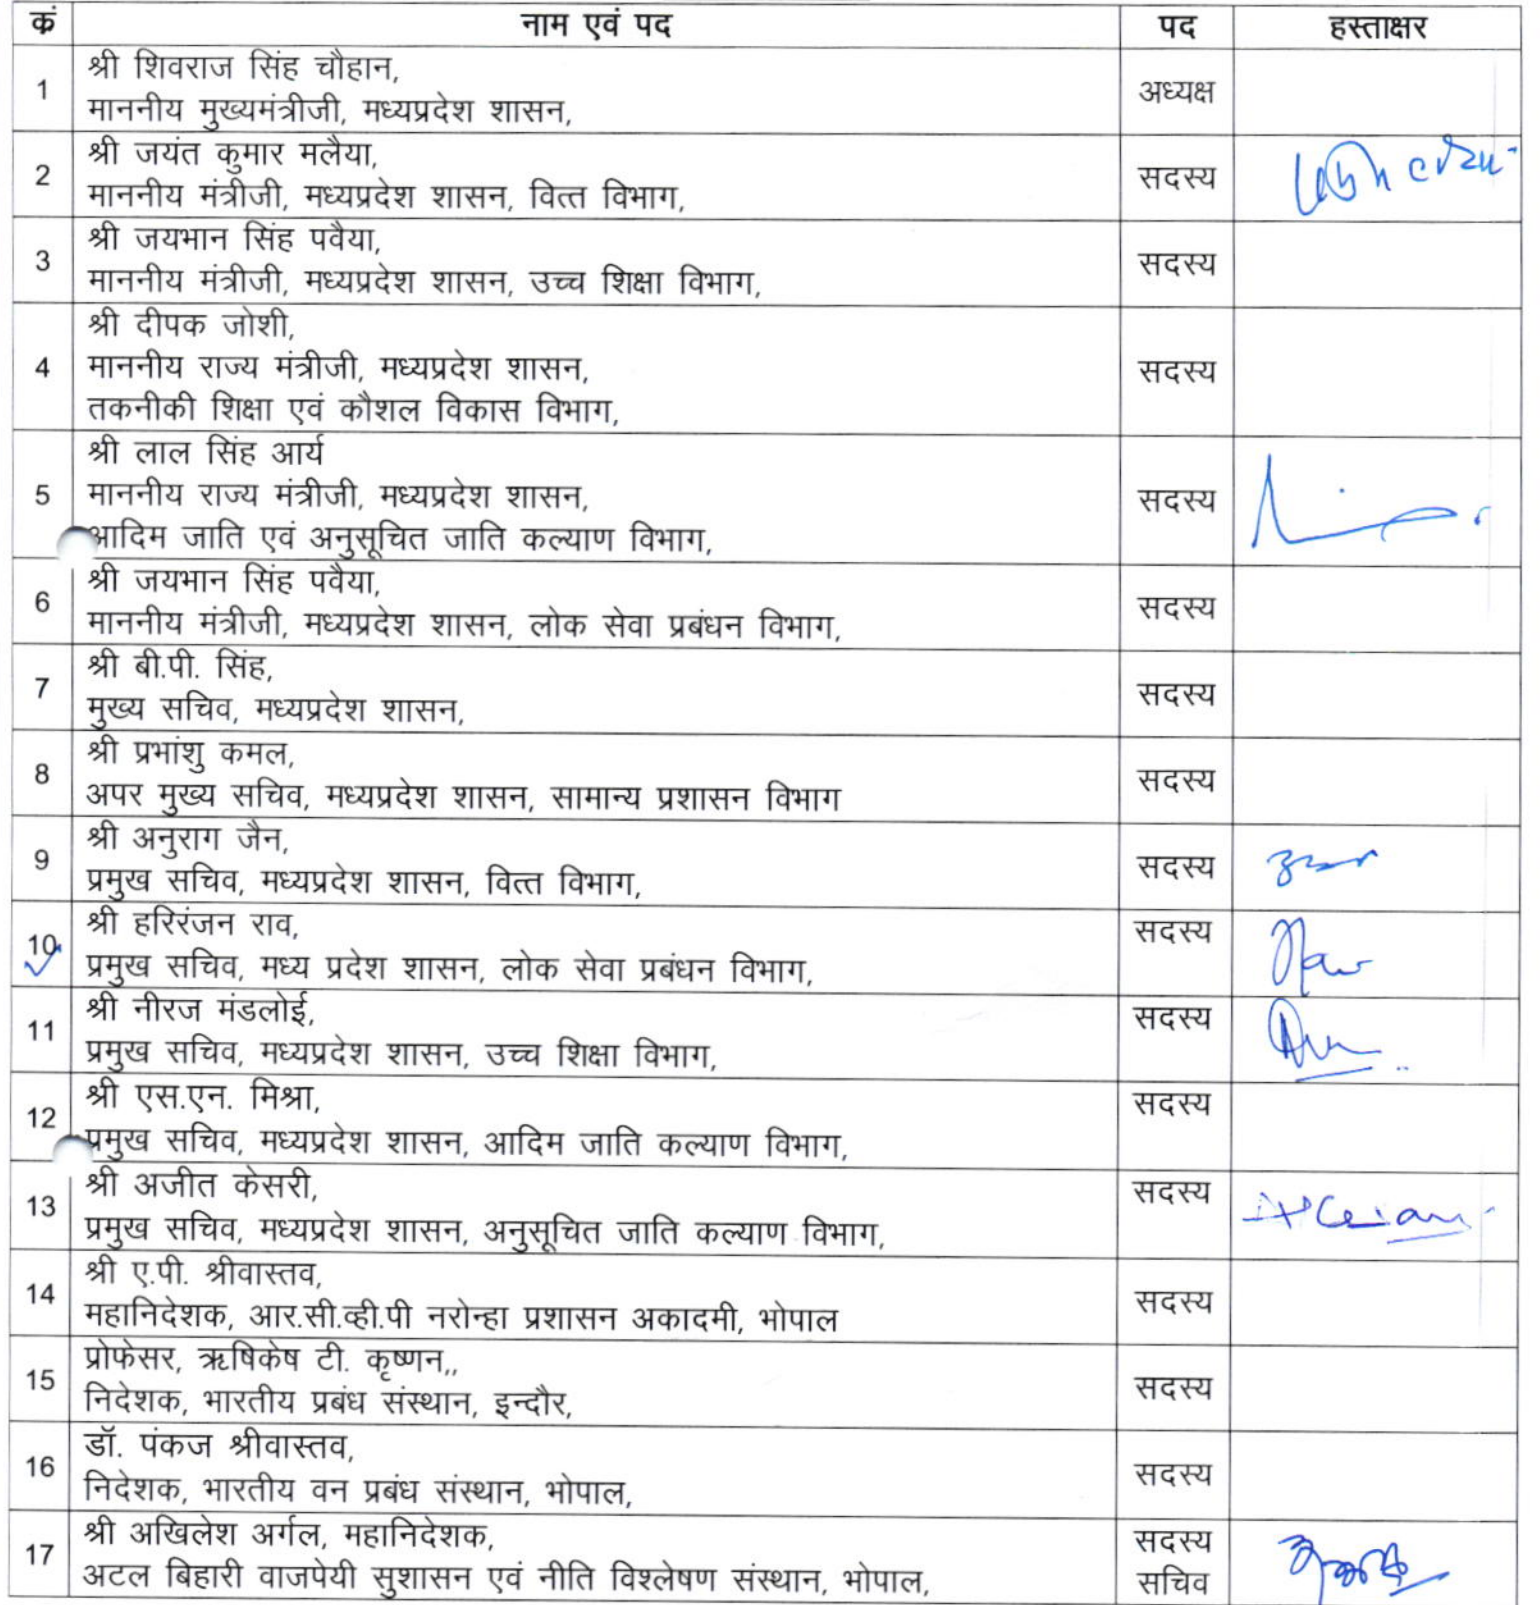 क्रं नाम एवं पद पद हस्ताक्षर
1 श्री शिवराज सिंह चौहान,
माननीय मुख्यमंत्रीजी, मध्यप्रदेश शासन, अध्यक्ष
2 श्री जयंत कुमार मलैया,
माननीय मंत्रीजी, मध्यप्रदेश शासन, वित्त विभाग, सदस्य
3 श्री जयभान सिंह पवैया,
माननीय मंत्रीजी, मध्यप्रदेश शासन, उच्च शिक्षा विभाग, सदस्य
4 श्री दीपक जोशी,
माननीय राज्य मंत्रीजी, मध्यप्रदेश शासन, सदस्य
तकनीकी शिक्षा एवं कौशल विकास विभाग,
5 श्री लाल सिंह आर्य
माननीय राज्य मंत्रीजी, मध्यप्रदेश शासन, सदस्य
आदिम जाति एवं अनुसूचित जाति कल्याण विभाग,
6 श्री जयभान सिंह पवैया,
माननीय मंत्रीजी, मध्यप्रदेश शासन, लोक सेवा प्रबंधन विभाग, सदस्य
7 श्री बी.पी. सिंह,
मुख्य सचिव, मध्यप्रदेश शासन, सदस्य
8 श्री प्रभांशु कमल,
अपर मुख्य सचिव, मध्यप्रदेश शासन, सामान्य प्रशासन विभाग सदस्य
9 श्री अनुराग जैन,
प्रमुख सचिव, मध्यप्रदेश शासन, वित्त विभाग, सदस्य
10 श्री हरिरंजन राव, सदस्य
प्रमुख सचिव, मध्य प्रदेश शासन, लोक सेवा प्रबंधन विभाग,
11 श्री नीरज मंडलोई, सदस्य
प्रमुख सचिव, मध्यप्रदेश शासन, उच्च शिक्षा विभाग,
12 श्री एस.एन. मिश्रा, सदस्य
प्रमुख सचिव, मध्यप्रदेश शासन, आदिम जाति कल्याण विभाग,
13 श्री अजीत केसरी, सदस्य
प्रमुख सचिव, मध्यप्रदेश शासन, अनुसूचित जाति कल्याण विभाग,
14 श्री ए.पी. श्रीवास्तव,
महानिदेशक, आर.सी.व्ही.पी नरोन्हा प्रशासन अकादमी, भोपाल सदस्य
15 प्रोफेसर, ऋषिकेष टी. कृष्णन,,
निदेशक, भारतीय प्रबंध संस्थान, इन्दौर, सदस्य
16 डॉ. पंकज श्रीवास्तव,
निदेशक, भारतीय वन प्रबंध संस्थान, भोपाल, सदस्य
17 श्री अखिलेश अर्गल, महानिदेशक, सदस्य
अटल बिहारी वाजपेयी सुशासन एवं नीति विश्लेषण संस्थान, भोपाल, सचिव